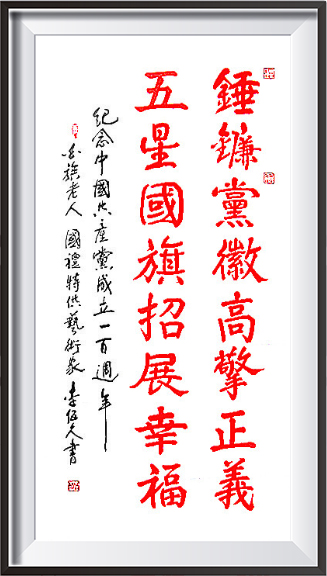 錘鐮黨徽高擎正義
五星國旗招展幸福
紀念中國共產黨成立一百週年
族老人 國禮特供藝術家 李久書